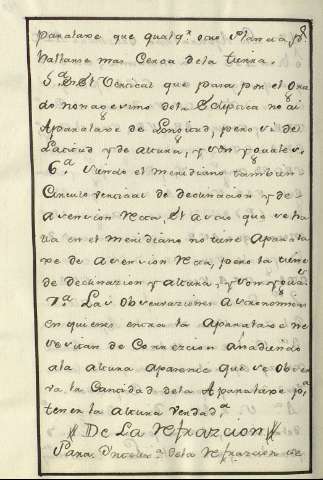 paralaxe que qualq.r otro Planeta, p.r
hallarse mas Cerca dela tierra.
5.a En El Vertical que pasa por el Gra
do nonagesimo dela Ecliptica no ai
Aparalaxe de Longitud, pero si de
Latitud y de altura, y son yguales.
6.a Siendo el meridiano tambien
Circulo vertical de declinacion y de
Ascension Recta, El Astro que se ha
lla en el meridiano no tiene Aparala
xe de Ascension Recta, pero la tiene
de declinazion y Altura, y son ygua.s
7.a Las Observaziones Astronomicas
en quienes entra la Aparalaxe ne
cesitan de Correzcion añadiendo
ala altura Aparente que se Obser
va la Cantidad dela Aparalaxe p.a
tener la altura verdad.a
De La Refrazcion
Para dela refrazcion